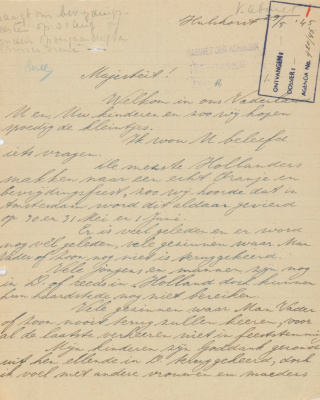 Kabinet
Hulshorst 29/5 '45
KABINET DER KONINGIN
ONTVANGEN:
DOSSIER:
AGENDA No.
Majesteit!
Welkom in ons Vaderland
U en Uw kinderen en zoo wij hopen
spoedig de kleintjes.
Ik wou U beleefd
iets vragen.
De meeste Hollanders
makken naar een echt Oranje en
bevrijdingsfeest, zoo wij hoorde dat in
Amsterdam word dit aldaar gevierd
op 30 en 31 Mei en 1 Juni.
Er is veel geleden en er word
nog veel geleden, vele gezinnen waar Man
Vader of zoon nog niet is teruggekeerd.
Vele Jongens en mannen zijn nog
in D. of reeds in Holland doch kunnen
hun haardstede nog niet bereiken.
Vele gezinnen waar Man Vader
of zoon nooit terug zullen keeren, voor
al de laatste verkeeren niet in feeststemming
Mijn kinderen zijn Goddank gezond
uit hen ellende in D. teruggekeerd, doch
ik voel met andere vrouwen en moeders